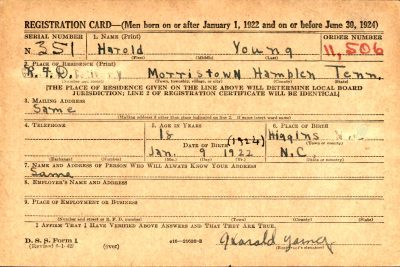 REGISTRATION CARD—(Men born on or after January 1, 1922 and on or before June 30, 1924)
SERIAL NUMBER 1. NAME (Print) ORDER NUMBER
N 351 Harold Young 11,506
(First) (Middle) (Last)
2. PLACE OF RESIDENCE (Print)
R.F.D. Morristown Hamblen Tenn.
(Number and street) (Town, township, village, or city) (County) (State)
[THE PLACE OF RESIDENCE GIVEN ON THE LINE ABOVE WILL DETERMINE LOCAL BOARD
JURISDICTION; LINE 2 OF REGISTRATION CERTIFICATE WILL BE IDENTICAL]
3. MAILING ADDRESS
Same
[Mailing address if other than place indicated on line 2. If same insert word same]
4. TELEPHONE 5. AGE IN YEARS 6. PLACE OF BIRTH
18 Higgins
DATE OF BIRTH (1924) (Town or county)
Jan. 9 1922 N.C.
(Exchange) (Number) (Mo.) (Day) (Yr.) (State or country)
7. NAME AND ADDRESS OF PERSON WHO WILL ALWAYS KNOW YOUR ADDRESS
Same
8. EMPLOYER'S NAME AND ADDRESS
9. PLACE OF EMPLOYMENT OR BUSINESS
(Number and street or R. F. D. number) (Town) (County) (State)
I AFFIRM THAT I HAVE VERIFIED ABOVE ANSWERS AND THAT THEY ARE TRUE.
D. S. S. Form 1
(Revised 6-1-42) (over) Harold Young
(Registrant's signature)